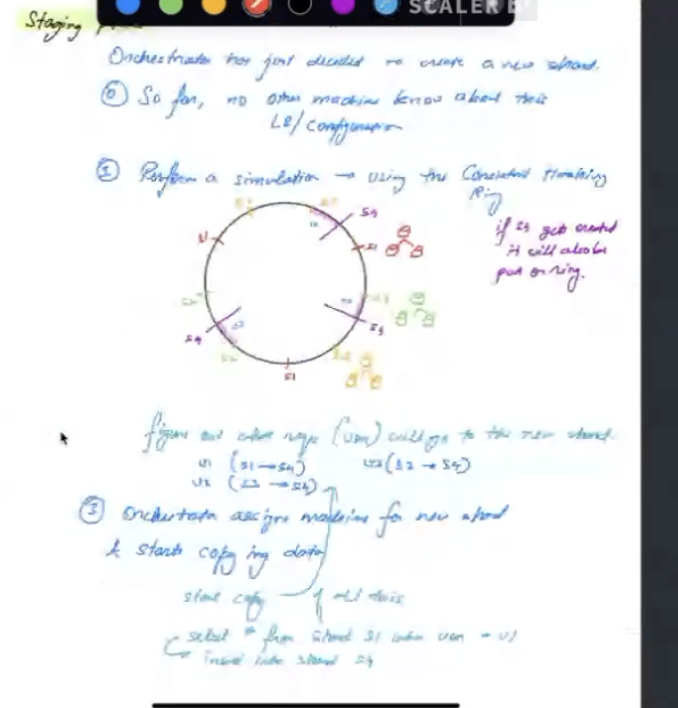 SCALER
Staging
Orchestrator has just decided to create a new shard.
⓪ So far, no other machine know about this
LB/configuration
① Perform a simulation → using the Consistent Hashing
Ring
S4
S1
if S4 get created
it will also be
part on ring.
S1
S4
S4
S1
figure out what range (user) will go to the new shard.
U1 (S1→S4) U3 (S2→S4)
U2 (S3→S4)
③ Orchestrator assigns machine for new shard
& starts copying data
start copy of all this
select * from shard S1 when user = U1
Insert into shard S4